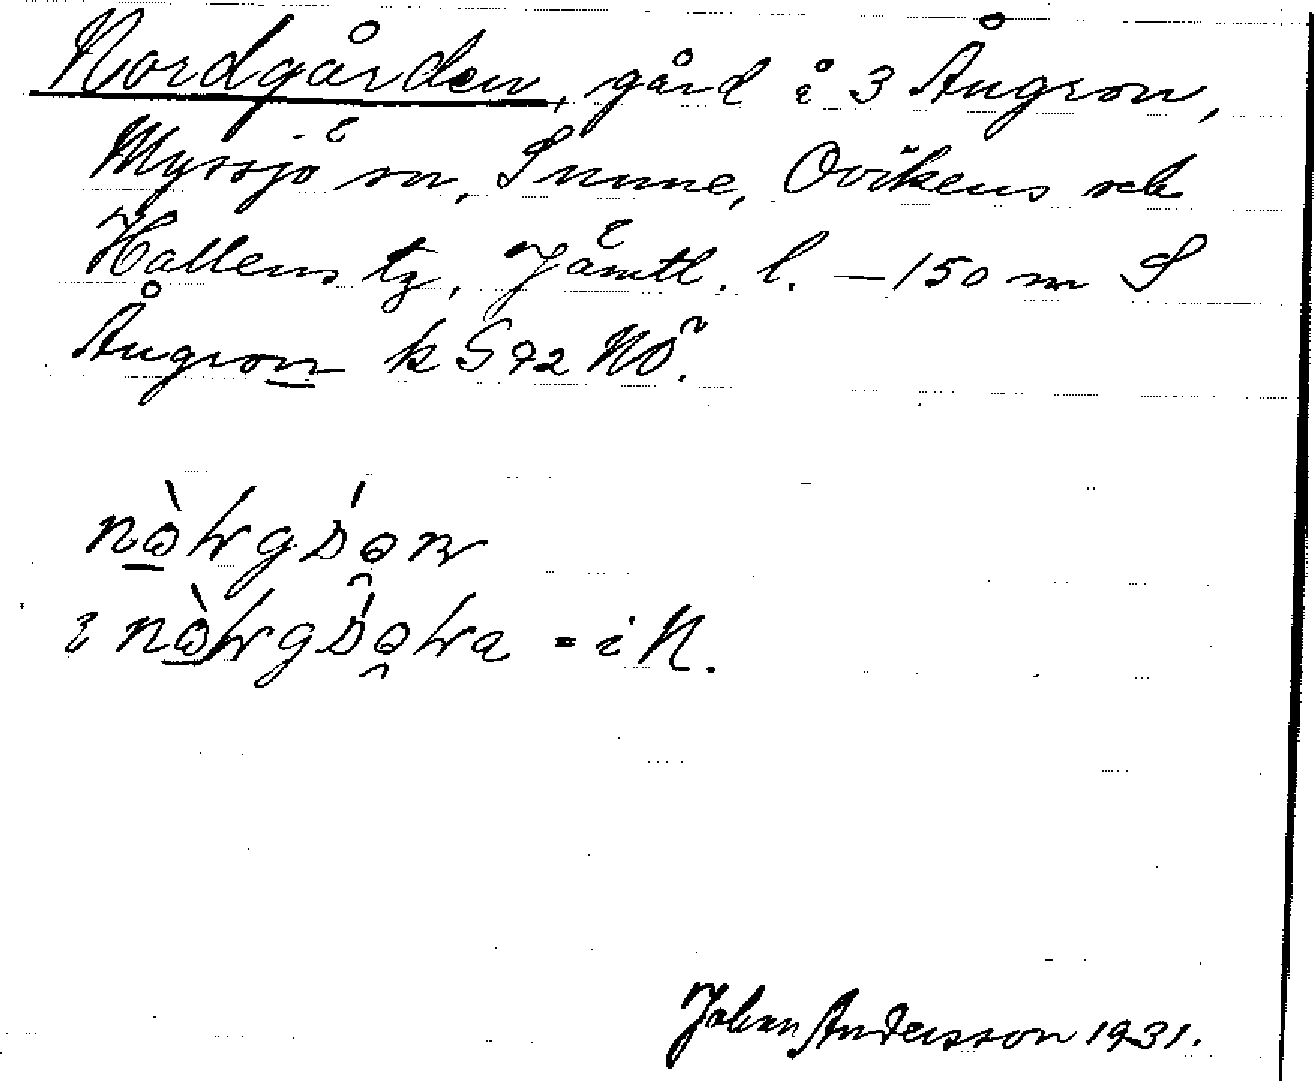 Nordgården, gård i 3 Ångron,
Myssjö sn, Sunne, Ovikens och
Hallens tg, Jämtl. l. – 150 m S
Ångron k S 72 NÖ.
= i N.
Johan Andersson 1931.